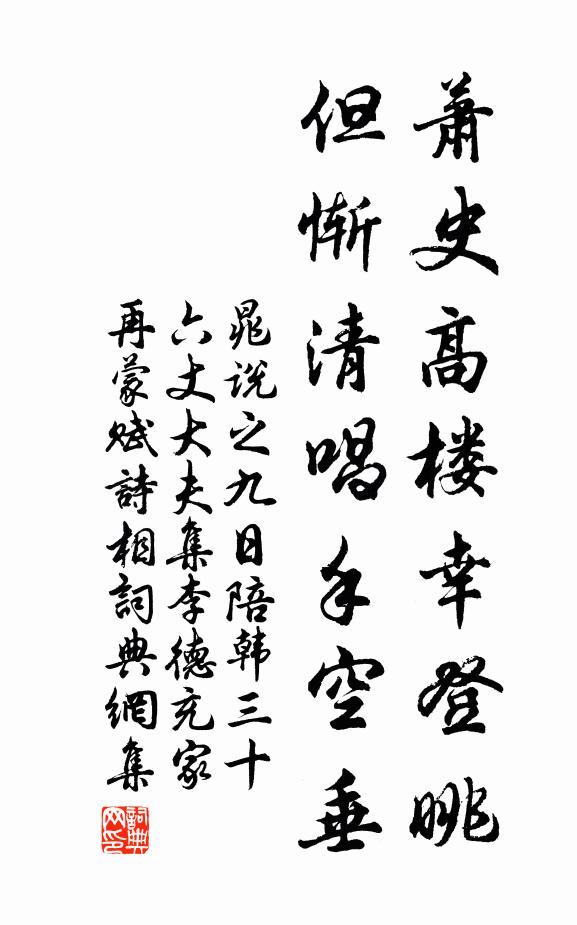 萧史高楼幸登眺
但惭清唱手空垂
晁說之九日陪韩三十
六丈大夫集李德充家
再蒙赋詩相詞典網集
詞典网印